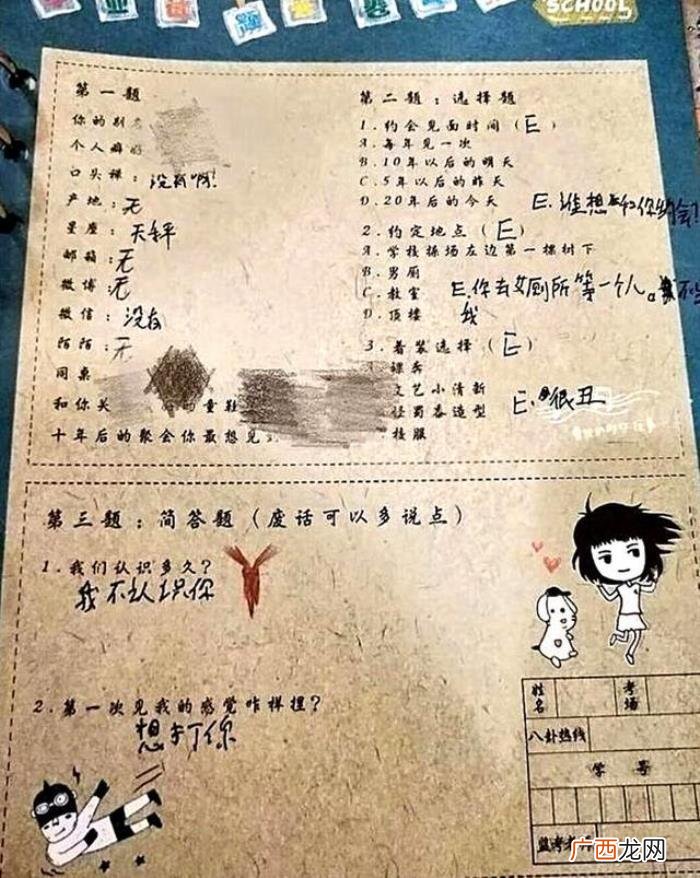 SCHOOL
第一题
你的别名
个人癖好
口头禅：没有啊！
产地：无
星座：天秤
邮箱：无
微博：无
微信：没有
陌陌：无
同桌
和你关
十年后的聚会你最想见到
第二题：选择题
1.约会见面时间（E）
A.每年见一次
B.10年以后的明天
C.5年以后的昨天
D.20年后的今天
E.谁想和你约会!
2.约定地点（E）
A.学校操场左边第一棵树下
B.男厕
C.教室
E.你去女厕所等一个人。我不
D.顶楼
我
3.着装选择（E）
裸奔
文艺小清新
怪蜀黍造型
E.很丑
校服
第三题：简答题（废话可以多说点）
1.我们认识多久？
我不认识你
2.第一次见我的感觉咋样捏？
想打你
姓名
考场
八卦热线
学号
监考老师
广西龙网